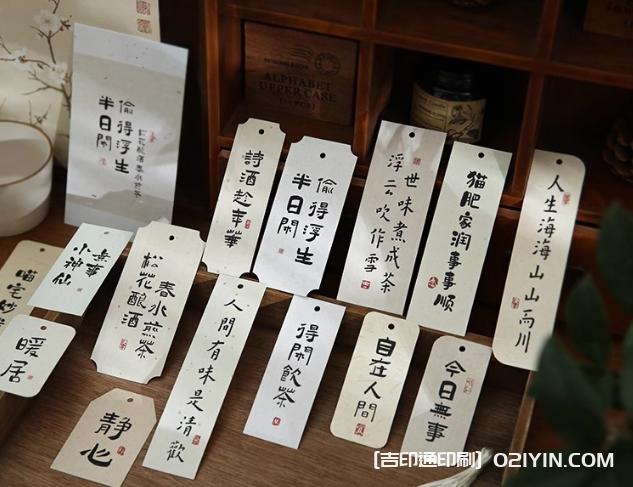 偷得浮生
半日閑
ALPHABET
UPPER CASE
詩酒趁年華
偷得浮生
半日閑
世味煮成茶
浮云吹作雪
猫肥家润事事順
人生海海山山而川
無事
小神仙
春水煎茶
松花酿酒
喵宅妙
暖居
靜心
人間有味是清歡
得閑飲茶
自在人間
今日無事
[吉印通印刷] O2IYIN.COM